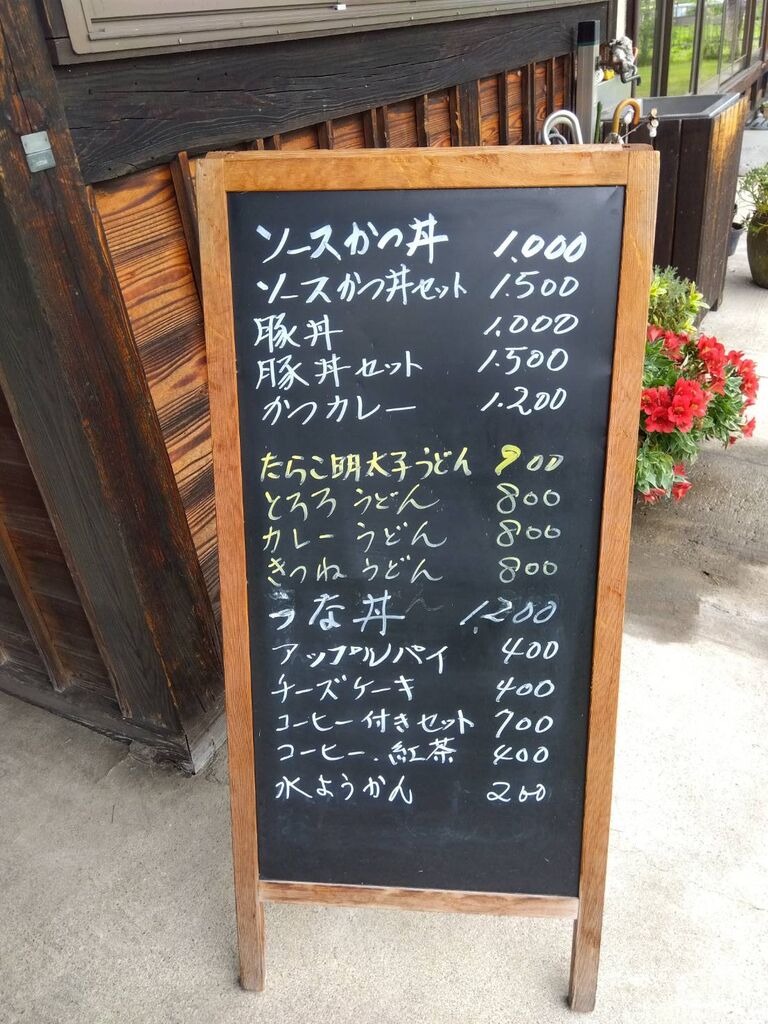 ソースかつ丼 1.000
ソースかつ丼セット 1.500
豚丼 1.000
豚丼セット 1.500
かつカレー 1.200
たらこ明太子うどん 900
とろろうどん 800
カレーうどん 800
きつねうどん 800
うな丼 1.200
アップルパイ 400
チーズケーキ 400
コーヒー付きセット 700
コーヒー.紅茶 400
水ようかん 200